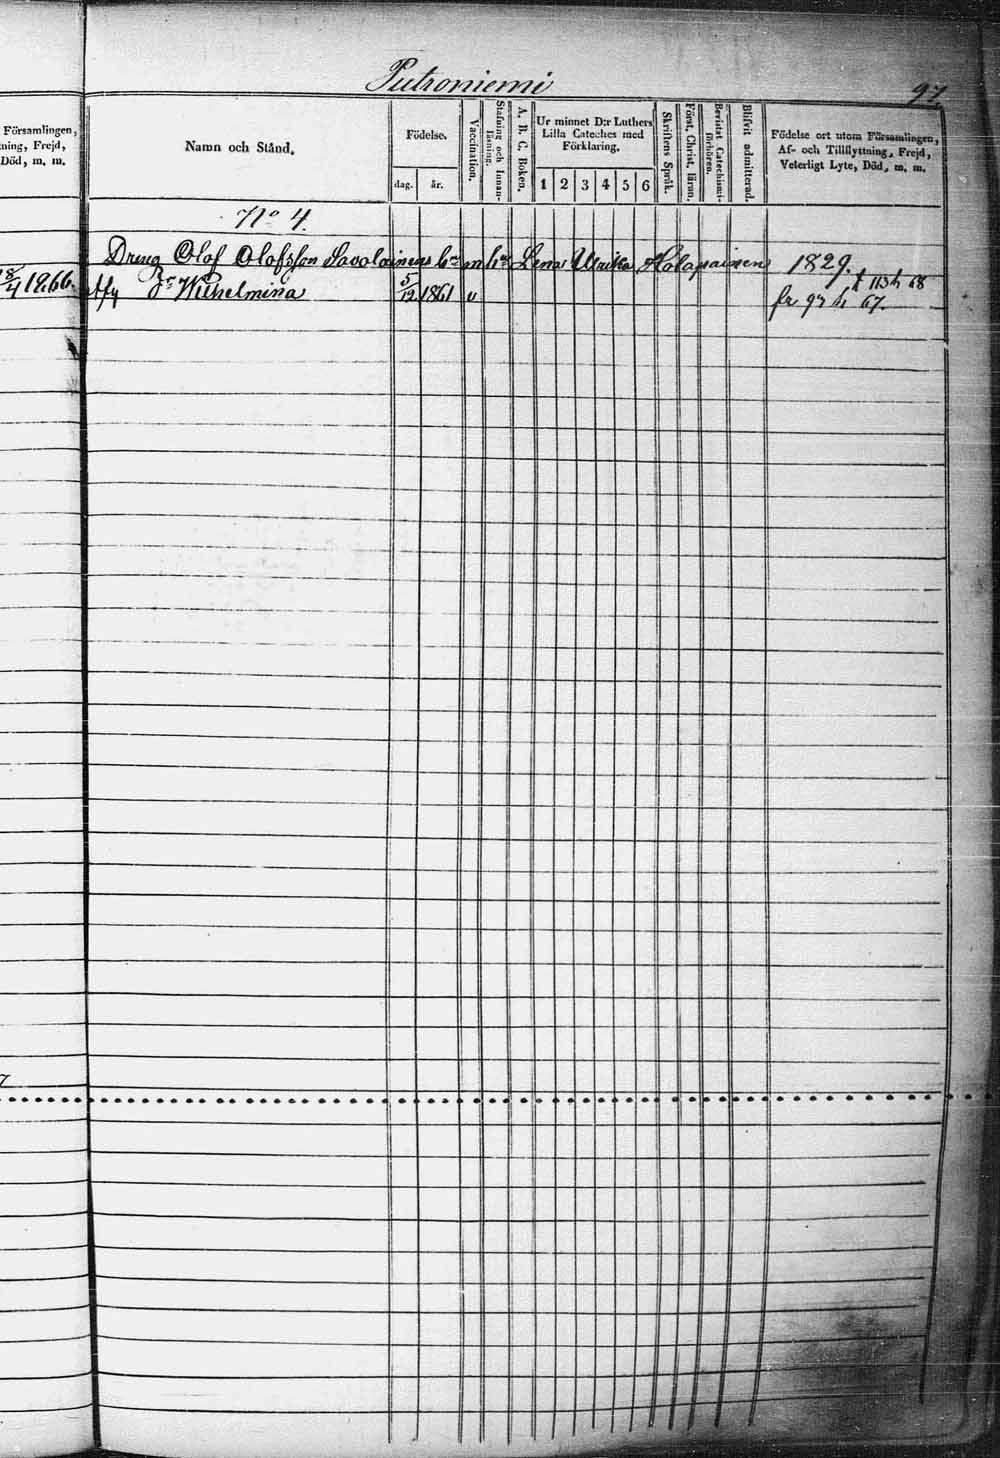 Putroniemi
97.
Församlingen,
ning, Frejd,
Död, m. m.
Namn och Stånd.
Födelse.
dag.
år.
Vaccination.
Stafning och Innan-
läsning.
A. B. C. Boken.
Ur minnet D:r Luthers
Lilla Cateches med
Förklaring.
1 2 3 4 5 6
Skriftens Språk.
Först. Christ. läran.
Bevistat Catechismi-
förhören.
Blifvit admitterad.
Födelse ort utom Församlingen,
Af- och Tillflyttning, Frejd,
Veterligt Lyte, Död, m. m.
No 4.
Dreng Olof Olofsson Savolainens Lena Ulrika Holapainen 1829.
1866.
Wilhelmina 5/12 1861 v
113 h 68
fr 97 h 67.